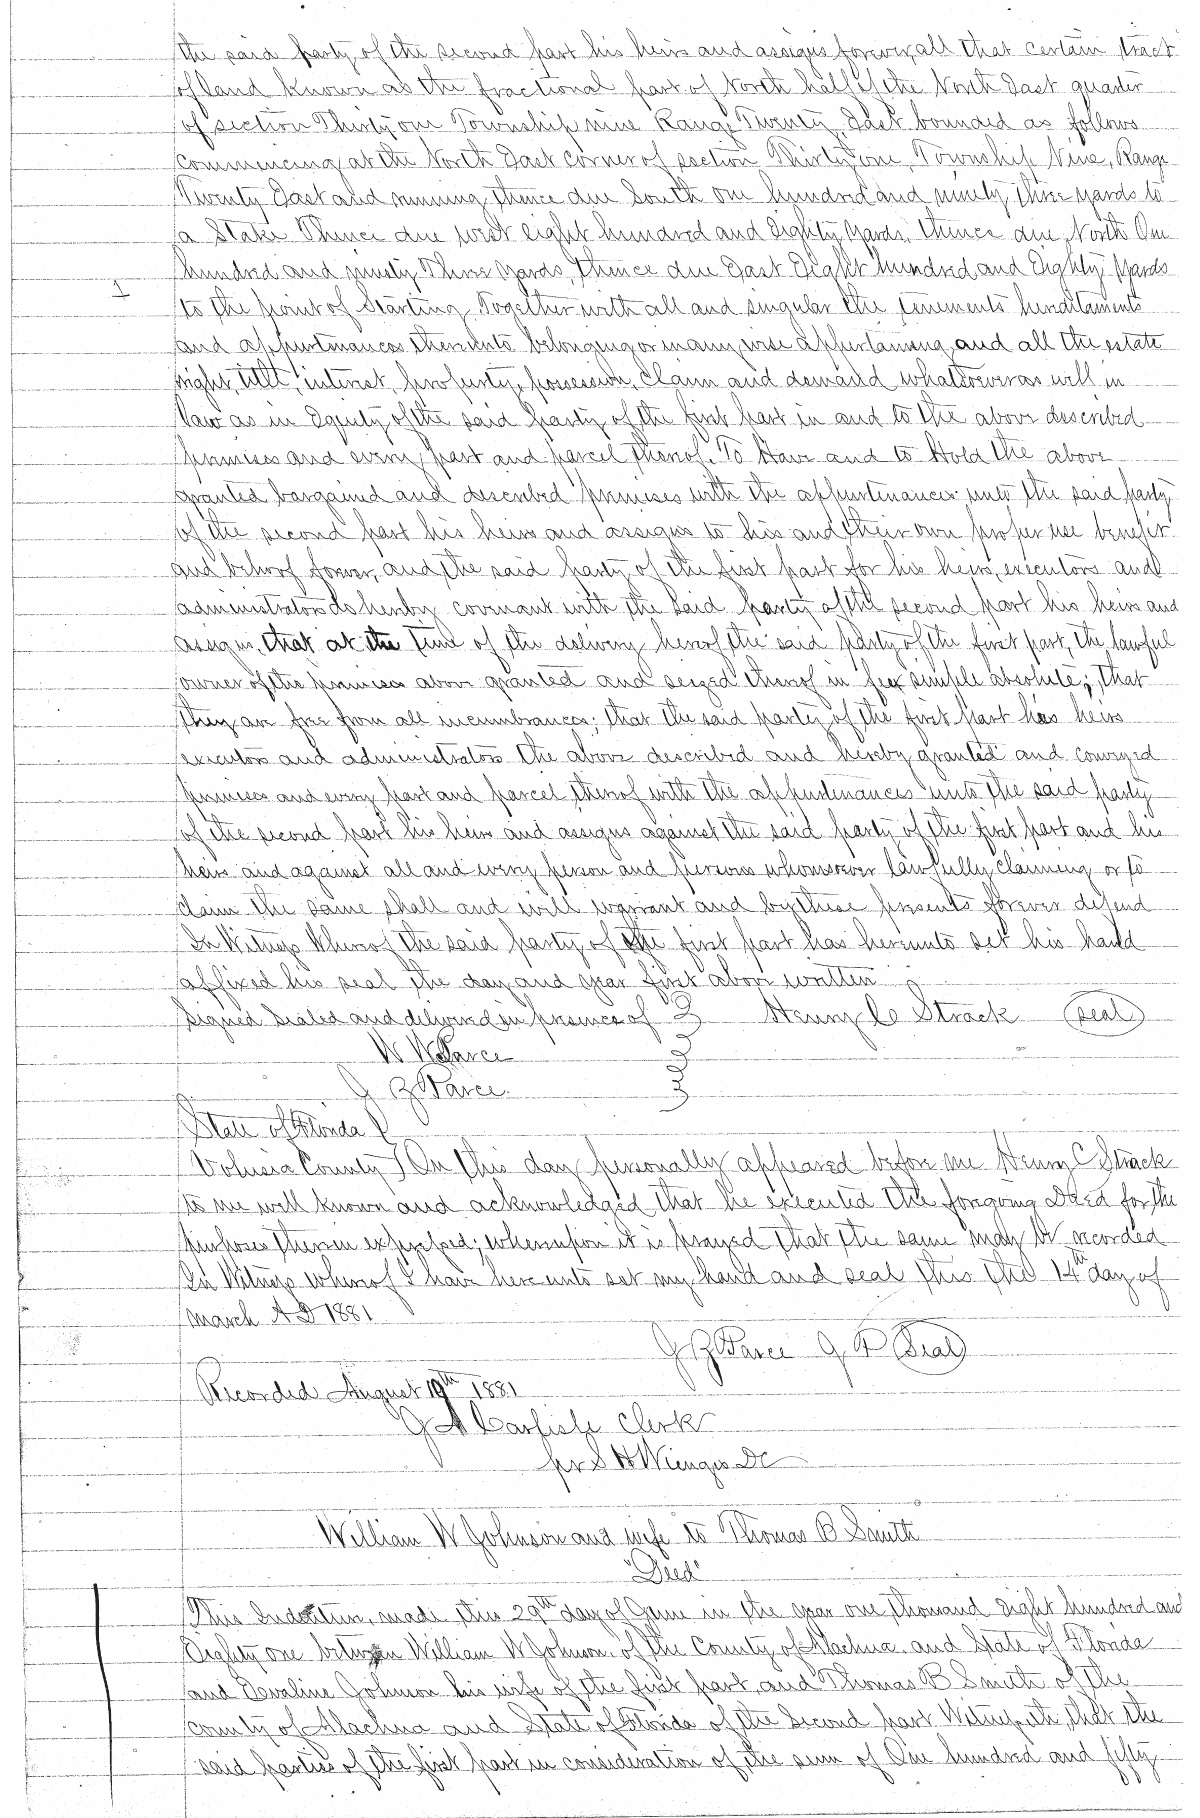 the said party of the second part his heirs and assigns forever, all that certain tract
of land known as the fractional part of North half of the North East quarter
of section Thirty one Township nine Range Twenty East bounded as follows
commencing at the North East corner of section Thirty one, Township Nine, Range
Twenty East and running thence due South one hundred and ninety three yards to
a Stake Thence due west eight hundred and Eighty Yards, thence due North One
hundred and ninety Three Yards, thence due East Eight hundred and Eighty Yards
1
to the point of Starting Together with all and singular the tenements hereditaments
and appurtenances thereunto belonging or in any wise appertaining and all the estate
right, title, interest, property, possession, claim and demand whatsoever as well in
law as in Equity of the said party of the first part in and to the above described
premises and every part and parcel thereof. To Have and to Hold the above
granted, bargained and described premises with the appurtenances unto the said party
of the second part his heirs and assigns to his and their own proper use benefit
and behoof forever, and the said party of the first part for his heirs, executors and
administrators do hereby covenant with the said party of the second part his heirs and
assigns, that at the time of the delivery hereof the said party of the first part, the lawful
owner of the premises above granted and seized thereof in fee simple absolute; that
they are free from all incumbrances; that the said party of the first part his heirs
executors and administrators the above described and hereby granted and conveyed
premises and every part and parcel thereof with the appurtenances unto the said party
of the second part his heirs and assigns against the said party of the first part and his
heirs and against all and every person and persons whomsoever lawfully claiming or to
claim the same shall and will warrant and by these presents forever defend
In Witness Whereof the said party of the first part has hereunto set his hand
affixed his seal the day and year first above written
Signed Sealed and delivered in presence of Henry C Strack (seal)
W W Parce
J Z Parce
State of Florida
Volusia County } On this day personally appeared before me Henry C Strack
to me well known and acknowledged that he executed the foregoing Deed for the
purposes therein expressed; whereupon it is prayed that the same may be recorded
In Witness whereof I have hereunto set my hand and seal this the 14th day of
March A D 1881
J Z Parce J P (Seal)
Recorded August 19th 1881
J A Carlisle Clerk
pr S H Wienges DC
William W Johnson and wife to Thomas B Smith
"Deed"
This Indenture, made this 29th day of June in the year one thousand Eight hundred and
Eighty one between William W Johnson, of the County of Alachua and State of Florida
and Evaline Johnson his wife of the first part, and Thomas B Smith of the
county of Alachua and State of Florida of the Second part Witnesseth, that the
said parties of the first part in consideration of the sum of One hundred and fifty